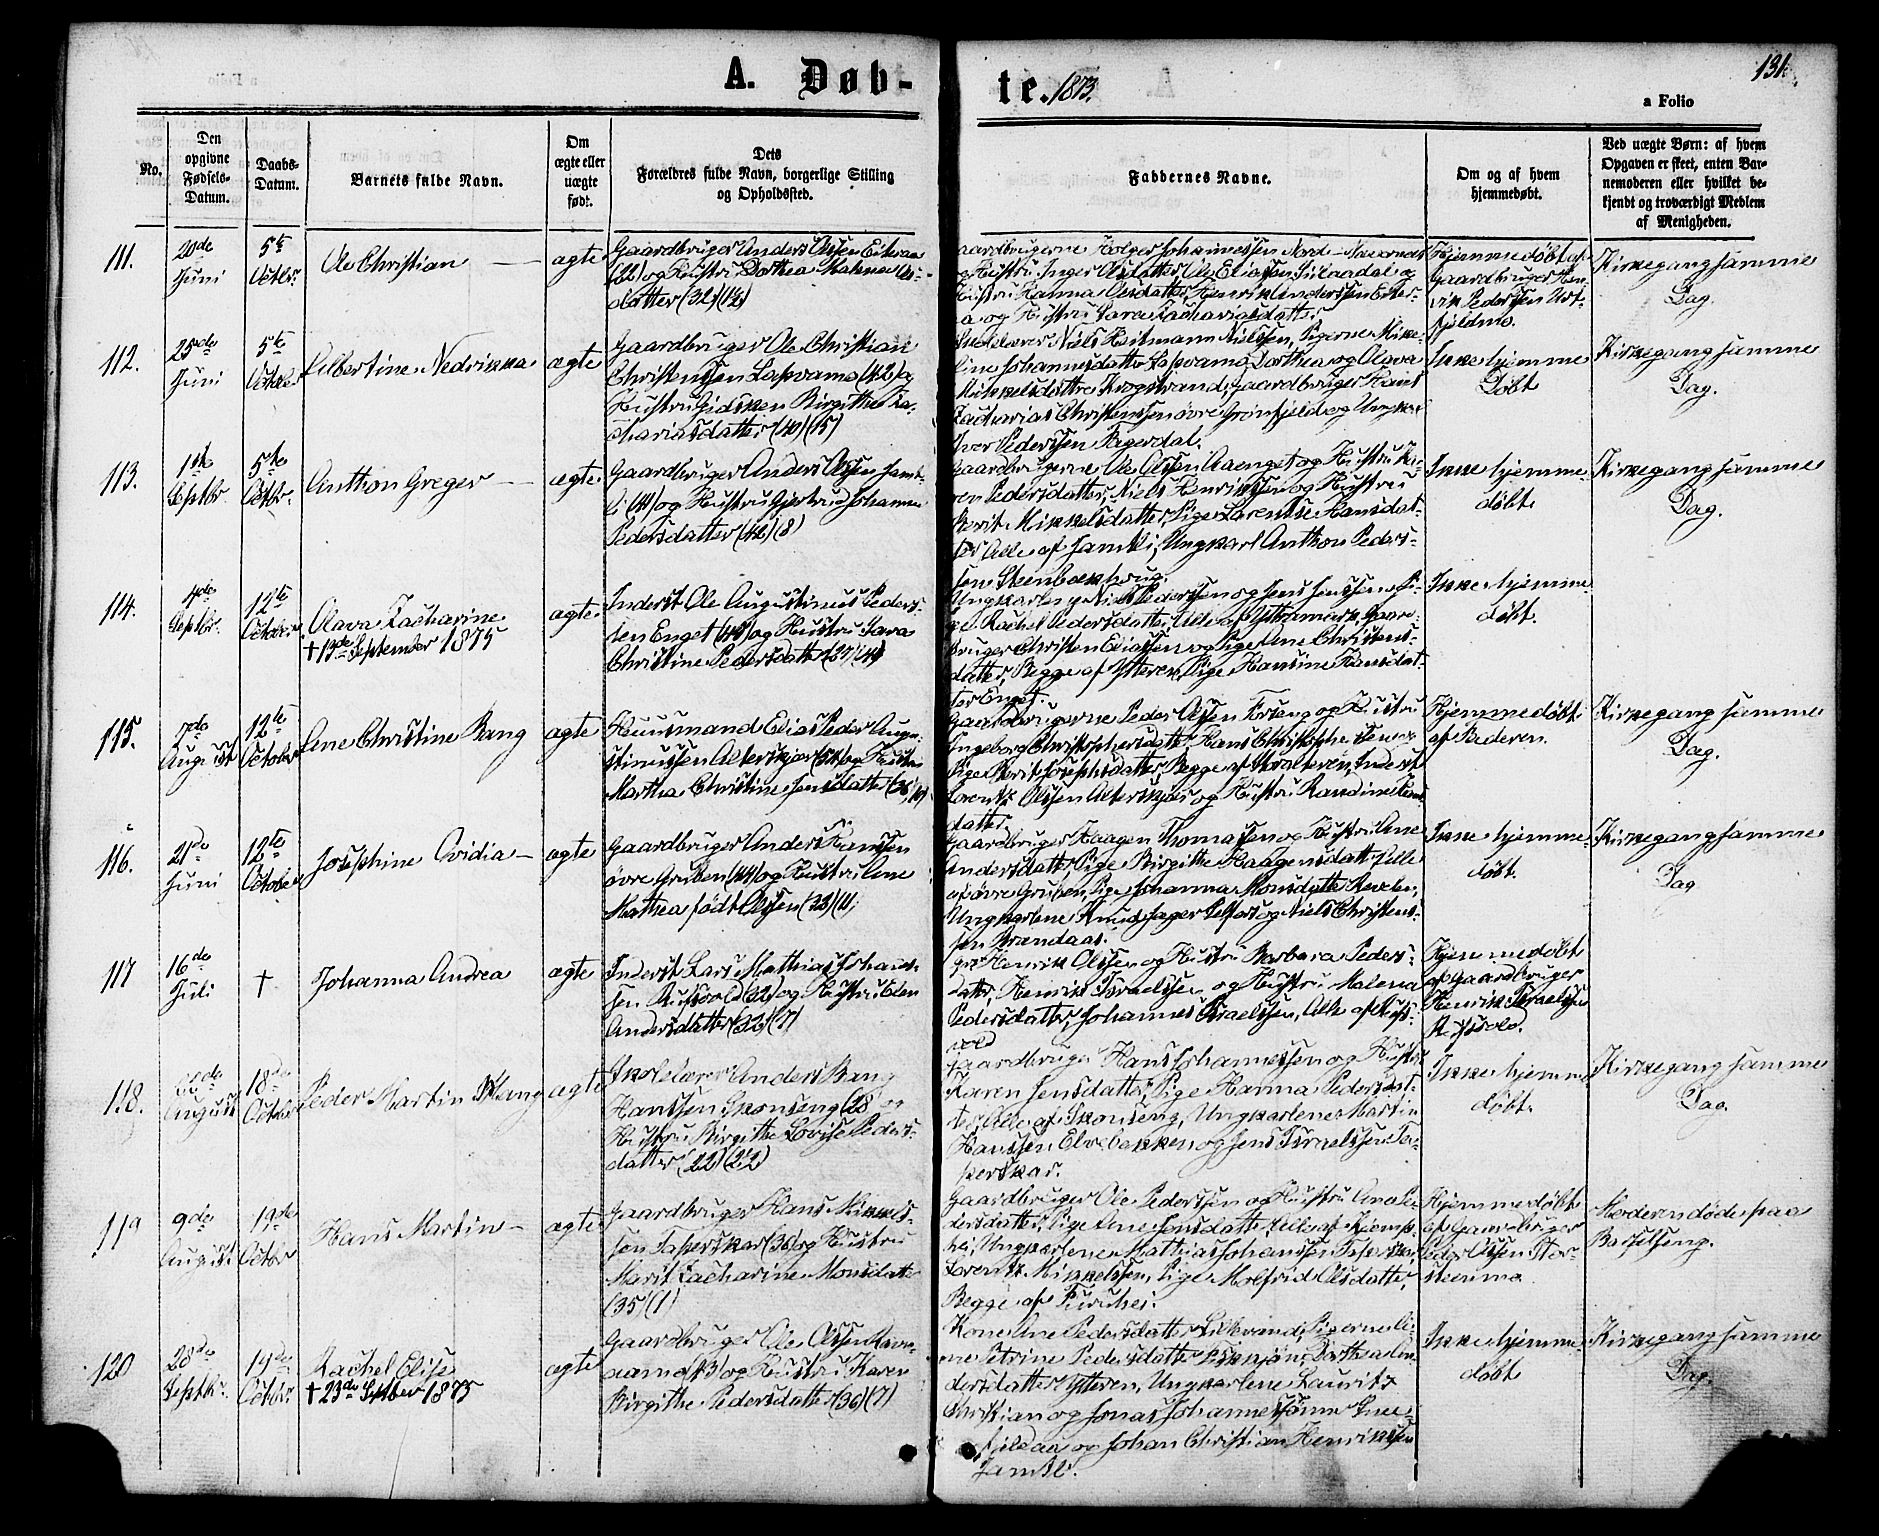 A. Døb-
te. 1873.
131.
a Folio
No.
Den opgivne Fødsels-Datum.
Daabs-Datum.
Barnets fulde Navn.
Om ægte eller uægte født.
Dets Forældres fulde Navn, borgerlige Stilling og Opholdssted.
Faddernes Navne.
Om og af hvem hjemmedøbt.
Ved uægte Børn: af hvem Opgaven er skeet, enten Barnemoderen eller hvilket bekjendt og troværdigt Medlem af Menigheden.
111.
20de Juni
5te Octbr.
Ole Christian
ægte
Gaardbruger Anders Olssen
(22) og Hustru Dorthea Ols-
datter (32) (12)
Gaardbrugerne Holger Johannessen Nord-
og Hustru Inger Olsdatter, Ole Eliassen og
Hustru Hanna Olsdatter, Henrik Anderssen
og Hustru Sara Zachariasdatter
Hjemmedøbt af
Gaardbruger Hen-
rik Pederssen Urt-
fjeldmo.
Kirkegang samme
Dag.
112.
25de Juni
5te Octbr
Albertine Nedrikka
ægte
Gaardbruger Ole Christian
Christenssen (42) og
Hustru Gidsken Birgitha Za-
chariasdatter (40) (15)
Niels Heitmann Nielssen, Pigerne Mikke-
line Johannesdatter, Dorthea og Olava
Mikkelsdatter Krogstrand, Gaardbruger Hans
Zacharias Christenssen øvre Grønfjeld og Ungkar
Iver Pederssen Fagerdal.
Ikke hjemme
Døbt
Kirkegang samme
Dag.
113.
1ste Septbr.
5te Octbr.
Anthon Greger
ægte
Gaardbruger Anders Olssen Jamt-
li (44) og Hustru Gjertrud Johanna
Pedersdatter (42) (8)
Gaardbrugerne Ole Olssen Aaenget og Hustru Ka-
ren Pedersdatter, Niels Henrikssen og Hustru
Berit Mikkelsdatter, Pige Lorentse Hansdat-
ter Alle af Jamtli, Ungkarl Anthon Peders-
sen Steenbækhaug.
Ikke hjemme-
døbt
Kirkegang samme
Dag.
114.
4de Septbr.
12te October
Olava Zacharine
† 13de September 1875
ægte
Inderst Ole Augustinus Peders-
sen Enget (40) og Hustru Sara
Christine Pedersdatter (27) (4)
Ungkarlene Niels Pederssen og Jens Jenssen, Pi-
ge Rachel Pedersdatter, Alle af Ytteren, Gaard-
bruger Christen Eliassen og Pige Ane Christens-
datter, Begge af Ytteren, Pige Hansine Hansdat-
ter Enget.
Ikke hjemme-
døbt.
115.
7de August
12te October
Ane Christine Bang
ægte
Huusmand Elias Peder Augu-
stinussen Alterskjær (54) og Hustru
Martha Christine Jensdatter (36)
Gaardbrugerne Peder Olssen Forseng og Hustru
Ingeborg Christophersdatter, Hans Christophersen og
Pige Berit Josephsdatter, Begge af Inderst
Lorentz Olssen Alterskjær og Hustru Randine
datter.
Hjemmedøbt
af Faderen.
Kirkegang samme
Dag.
116.
21de Juni
12te October
Josephine Ovidia
ægte
Gaardbruger Anders Hanssen
øvre Gruben (44) og Hustru Ane
Mathea født Olssen (38) (11)
Gaardbruger Haagen Thomassen og Hustru Ane
Andersdatter, Pige Birgitha Haagensdatter Alle
af øvre Gruben, Pige Johanna Monsdatter Revelen,
Ungkarlene Knud Jager Selfors og Niels Christens-
sen Brændaas.
Ikke hjemme-
døbt.
Kirkegang samme
Dag
117
16de Juli
†
Johanna Andrea
ægte
Inderst Lars Mathias Johans-
sen Rufsvold (22) og Hustru Elen
Andersdatter (26) (7)
Henrik Olssen og Hustru Barbara Peders-
datter, Henrik Israelssen og Hustru Malena
Pedersdatter, Johannes Israelssen, Alle af Rufs-
vold
Hjemmedøbt
af Gaardbruger
Henrik Israelssen
Rufsvold.
118.
August
18de October
Peder Martin Bang
ægte
Skolelærer Anders Bang
Hanssen Skonseng (28) og
Hustru Birgitha Lovise Peders-
datter (22) (2½)
Gaardbruger Hans Johannessen og Hustru
Karen Jensdatter, Pige Hanna Pedersdat-
ter, Alle af Skonseng, Ungkarlene Martin
Hanssen Elvebakken og Jens Israelssen Ta-
perskar.
Ikke hjemme-
døbt.
Kirkegang samme
Dag.
119
9de August
19de Octbr
Hans Martin
ægte
Gaardbruger Hans Mikkels-
sen Taperskar (36) og Hustru
Marit Zacharine Monsdatter
(35) (1)
Gaardbruger Ole Pederssen og Hustru Ane Pe-
dersdatter, Pige Ane Jensdatter, Alle af Kjemp-
hei, Ungkarlene Mathias Johanssen Taperskar,
Lorentz Mikkelssen, Pige Molfrid Olsdatter,
Begge af Furuhei.
Hjemmedøbt
af Gaardbruger
Peder Olssen Stor-
steenmo
Moderen døde paa
Barselseng.
120
28de Septbr.
19de Octbr.
Rachel Elise
† 23de Septber 1875
ægte
Gaardbruger Ole Olssen Ravn-
aamo (43) og Hustru Karen
Birgithe Pedersdatter (36) (7)
Kone Ane Pedersdatter, Pigerne
Petrine Pedersdatter, Dorthea An-
dersdatter Ytteren, Ungkarlene Lauritz
Christian og Jonas Johannessønner Snee-
fjeldaa og Johan Christian Henrikssen
Jamtli.
Ikke hjemme-
døbt
Kirkegang samme
Dag.